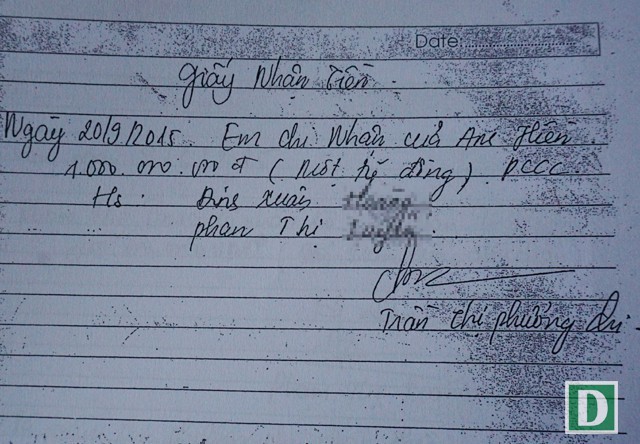 Date:
Giấy Nhận Tiền
Ngày 20/9/2015. Em chi Nhận của Anh Hiền.
1.000.000.000 đ (Một tỷ đồng). PCCC
Hs. Đinh Xuân
Phan Thị
Trần Thị Phương
D